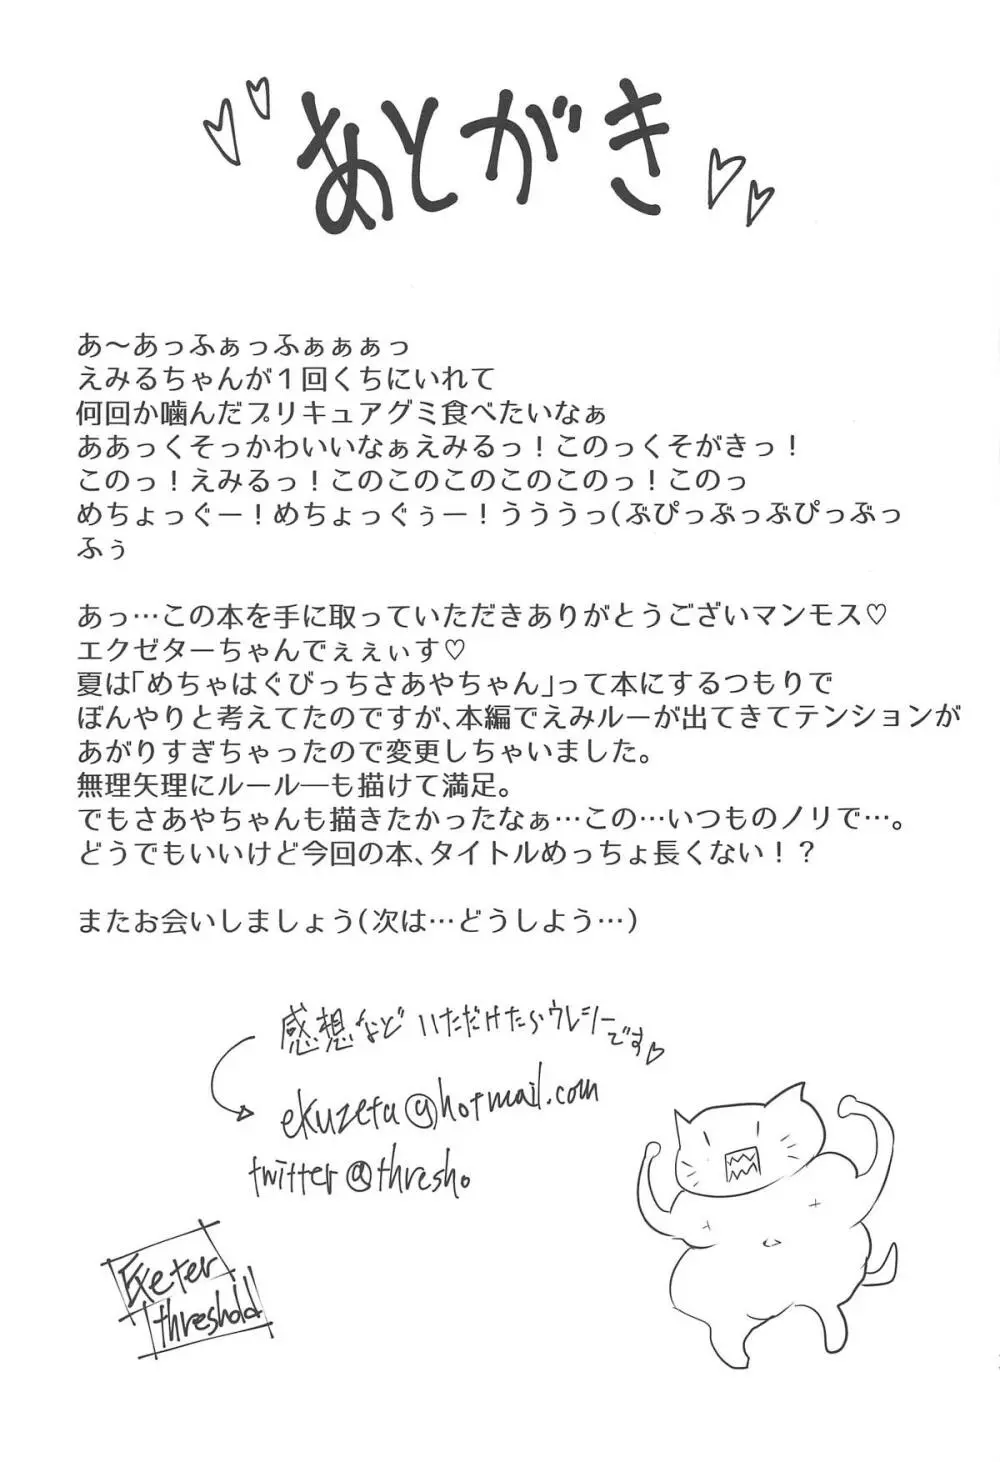 あとがき
あ～あっふぁっふぁぁぁっ
えみるちゃんが１回くちにいれて
何回か噛んだプリキュアグミ食べたいなぁ
ああっくそっかわいいなぁえみるっ！このっくそがきっ！
このっ！えみるっ！このこのこのこのこのっ！このっ
めちょっぐー！めちょっぐぅー！うううっ（ぶぴっぶっぶぴっぶっ
ふぅ
あっ…この本を手に取っていただきありがとうございマンモス♡
エクゼターちゃんでぇぇぃす♡
夏は「めちゃはぐびっちさあやちゃん」って本にするつもりで
ぼんやりと考えてたのですが、本編でえみルーが出てきてテンションが
あがりすぎちゃったので変更しちゃいました。
無理矢理にルールーも描けて満足。
でもさあやちゃんも描きたかったなぁ…この…いつものノリで…。
どうでもいいけど今回の本、タイトルめっちょ長くない！？
またお会いしましょう（次は…どうしよう…）
感想など いただけたらウレシーです♡
ekuzeta@hotmail.com
twitter@thresho
Exeter
threshold